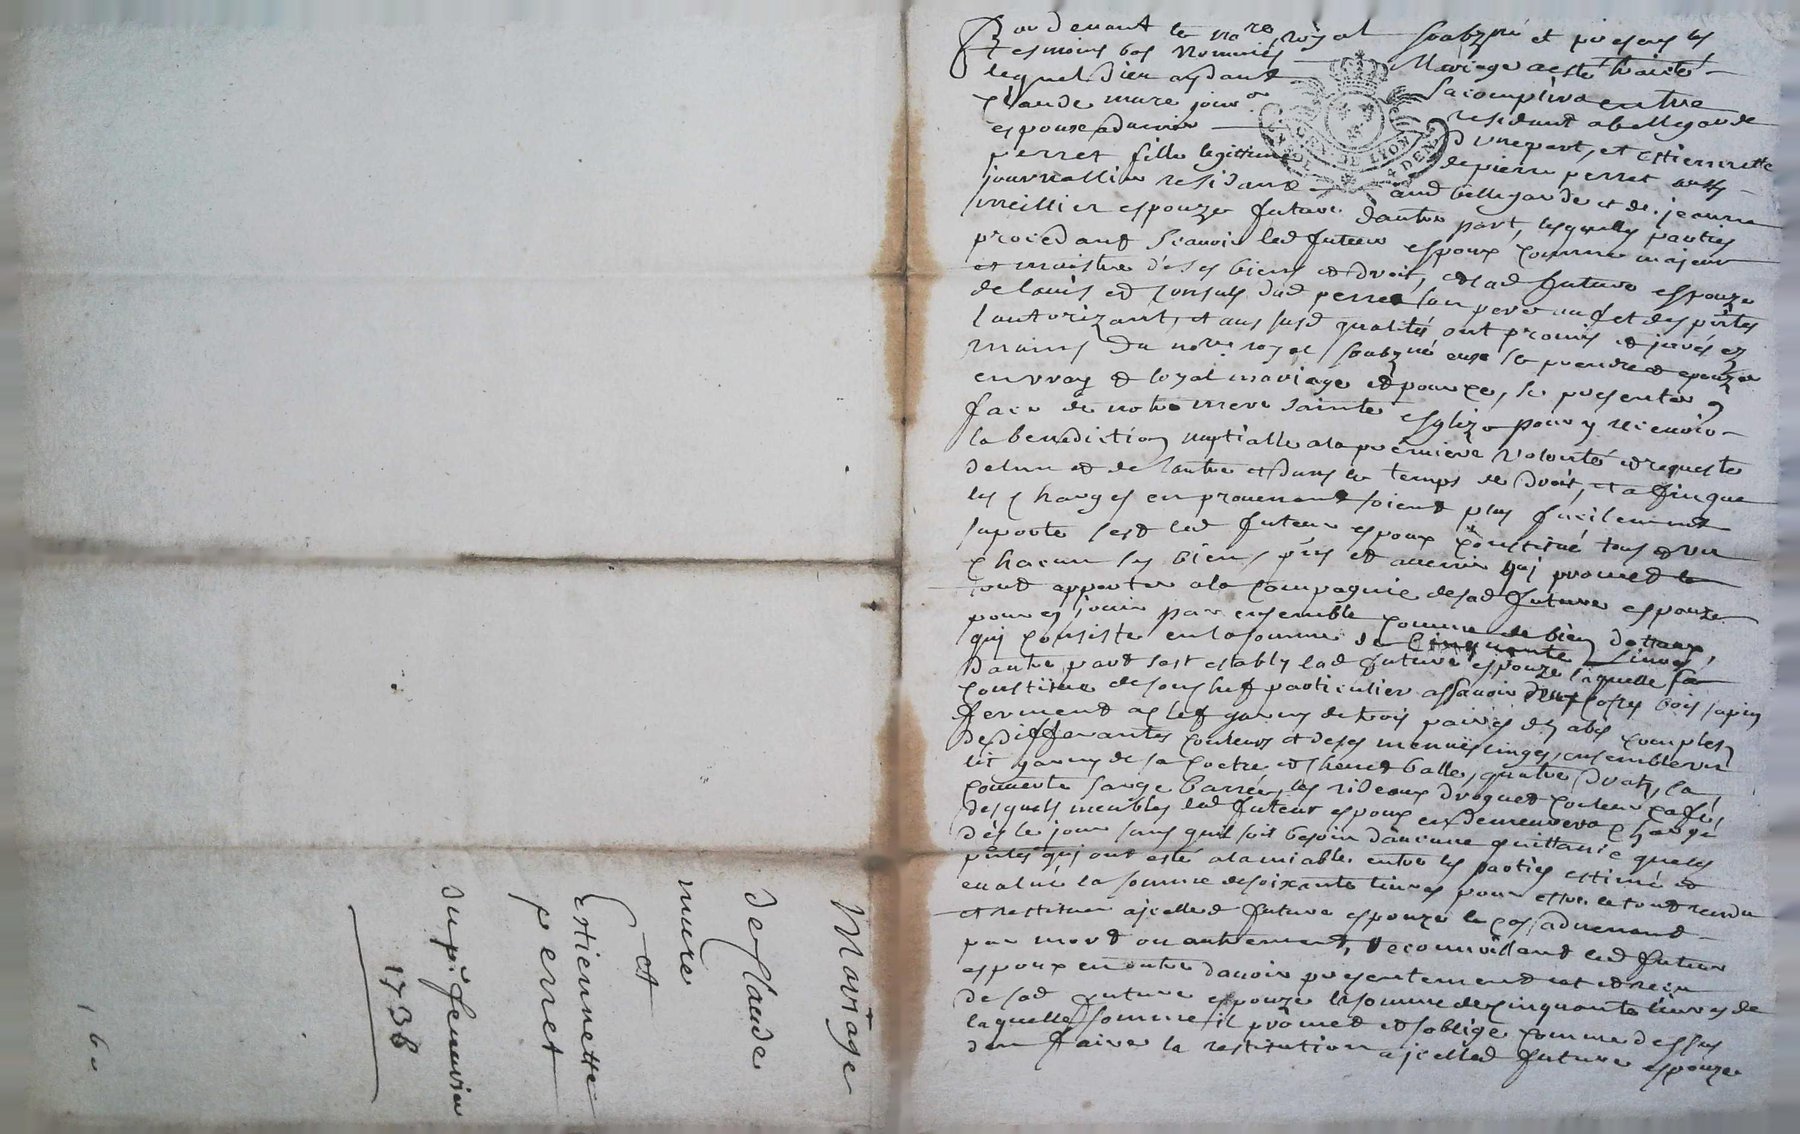 Par devant le no.re royal soubzné et presens les
tesmoins bas nommés Mariage a esté traité
lequel Dieu aydant s'acomplira entre
Claude mure jour.er residant a bellegarde
espoux advenir d'une part, et Estiennette
perret fille legitime de pierre perret aussy
journallier residant aud bellegarde et de jeanne
espouze future d'autre part, lesquelles parties
procedant scavoir led futeur espoux comme majeur
et maistre de ses biens et droit, et lad future espouze
de lavis et conseil dud perret son pere
l'autorizant, et aux susd qualités ont promis et jurés ez
mains du no.re royal soubzné de se prendre et epouzer
en vray et loyal mariage et pour ce, se presenter en
face de notre mere sainte esglize pour y recevoir
la benediction nuptialle a la premiere volonté et requeste
de lun et de l'autre et dans le temps de droit, et afin que
les charges en provenant soient plus facilement
suporté sest led futeur espoux constitué tous et un
chacun ses biens p.ns et avenir qui promet le
tout apporter a la compagnie de sad future espouze
pour en jouir par ensemble comme de biens dottaux,
qui consiste en la somme de cinquante livres
d'autre part sest estably lad future espouze laquelle se
constitue de son chef particulier assavoir coffre bois sapin
ferment a clef garny de trois paires dhabis complets
de differantes couleurs et de ses menües linges, ensemble un
lit garny de sa coetre et chevet balle, quatre draps, la
couverte sarge barrée, les rideaux droguet couleur caffé,
desquels meubles led futeur espoux en demeurera chargé
dès le jour sans quil soit besoin d'aucune quittance que les
p.ntes qui ont esté a lamiable entre les parties estimé et
evalué la somme de soixante livres pour estre le tout rendu
et restituer a jcelle future espouze le cas advenant
par mort ou autrement, reconnoissant led futeur
espoux en outre davoir presentement eut et receu
de sad future espouze la somme de cinquante livres de
laquelle somme il promet et soblige comme dessus
den faire la restitution a jcelle future espouze
Mariage
de Claude
mure
et
Estiennette
perret
du p.r fevrier
1738